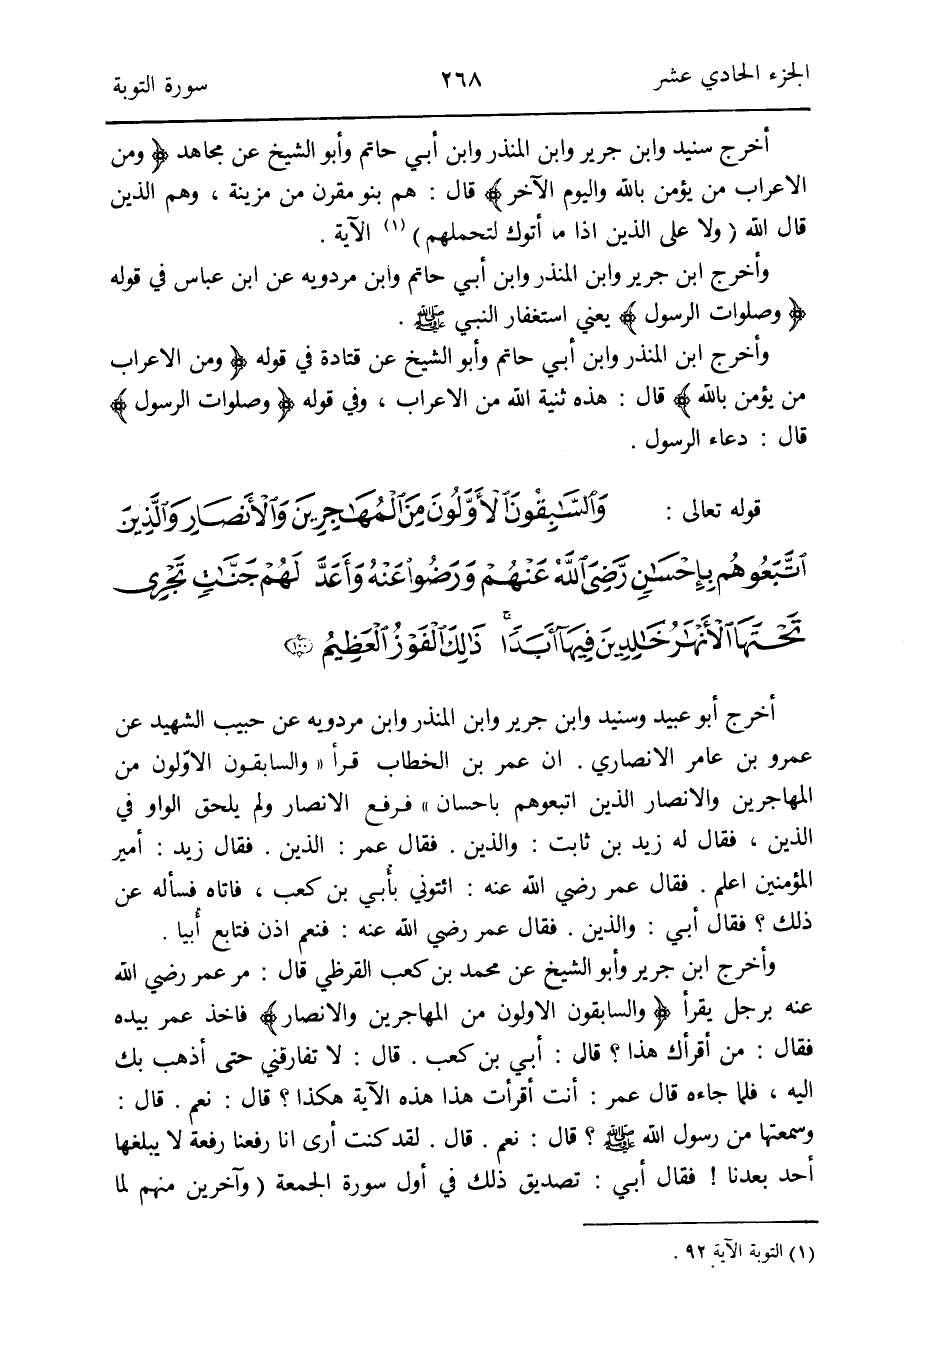 الجزء الحادي عشر ٢٦٨ سورة التوبة
أخرج سنيد وابن جرير وابن المنذر وابن أبي حاتم وأبو الشيخ عن مجاهد ﴿ ومن
الاعراب من يؤمن بالله واليوم الآخر ﴾ قال : هم بنو مقرن من مزينة ، وهم الذين
قال الله ( ولا على الذين اذا ما أتوك لتحملهم ) (١) الآية .
وأخرج ابن جرير وابن المنذر وابن أبي حاتم وابن مردويه عن ابن عباس في قوله
﴿ وصلوات الرسول ﴾ يعني استغفار النبي ﷺ .
وأخرج ابن المنذر وابن أبي حاتم وأبو الشيخ عن قتادة في قوله ﴿ ومن الاعراب
من يؤمن بالله ﴾ قال : هذه ثنية الله من الاعراب ، وفي قوله ﴿ وصلوات الرسول ﴾
قال : دعاء الرسول .
قوله تعالى : وَٱلسَّـٰبِقُونَ ٱلْأَوَّلُونَ مِنَ ٱلْمُهَـٰجِرِينَ وَٱلْأَنصَارِ وَٱلَّذِينَ
ٱتَّبَعُوهُم بِإِحْسَـٰنٍ رَّضِىَ ٱللَّهُ عَنْهُمْ وَرَضُوا۟ عَنْهُ وَأَعَدَّ لَهُمْ جَنَّـٰتٍ تَجْرِى
تَحْتَهَا ٱلْأَنْهَـٰرُ خَـٰلِدِينَ فِيهَآ أَبَدًا ۚ ذَٰلِكَ ٱلْفَوْزُ ٱلْعَظِيمُ ١٠٠
أخرج أبو عبيد وسنيد وابن جرير وابن المنذر وابن مردويه عن حبيب الشهيد عن
عمرو بن عامر الانصاري . ان عمر بن الخطاب قرأ « والسابقون الاوّلون من
المهاجرين والانصار الذين اتبعوهم باحسان » فرفع الانصار ولم يلحق الواو في
الذين ، فقال له زيد بن ثابت : والذين . فقال عمر : الذين . فقال زيد : أمير
المؤمنين اعلم . فقال عمر رضي الله عنه : ائتوني بأُبي بن كعب ، فاتاه فسأله عن
ذلك ؟ فقال أبي : والذين . فقال عمر رضي الله عنه : فنعم اذن فتابع أُبيا .
وأخرج ابن جرير وأبو الشيخ عن محمد بن كعب القرظي قال : مر عمر رضي الله
عنه برجل يقرأ ﴿ والسابقون الاولون من المهاجرين والانصار ﴾ فاخذ عمر بيده
فقال : من أقرأك هذا ؟ قال : أبي بن كعب . قال : لا تفارقني حتى أذهب بك
اليه ، فلما جاءه قال عمر : أنت أقرأت هذا هذه الآية هكذا ؟ قال : نعم . قال :
وسمعتها من رسول الله ﷺ ؟ قال : نعم . قال . لقد كنت أرى انا رفعنا رفعة لا يبلغها
أحد بعدنا ! فقال أبي : تصديق ذلك في أول سورة الجمعة ( وآخرين منهم لما
(١) التوبة الآية ٩٢ .